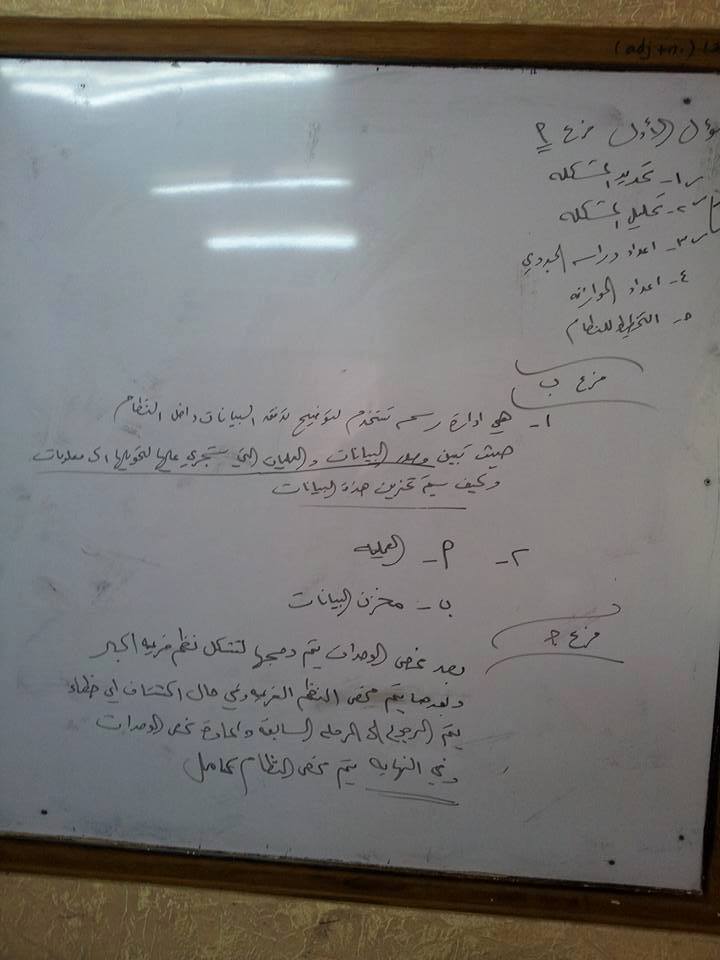 (adj + n.)
السؤال الأول فرع P
١- تحديد المشكله
٢- تحليل المشكله
٣- اعداد دراسه الجدوي
٤- اعداد الموازنه
٥- التخطيط للنظام
فرع ب
١- هي ادارة رسمه تستخدم لتوضيح تدفق البيانات داخل النظام
حيث تبين مصدر البيانات و العمليات التي ستجري عليها لتحويلها الى معلومات
وكيف سيتم تخزين هذة البيانات
٢- P- العمليه
ب- مخزن البيانات
فرع ج
بعد فحص الوحدات يتم دمجها لتشكل نظم فرعيه اكبر
وبعدها يتم فحص النظم الفرعيه وفي حال اكتشاف اي خطاء
يتم الرجوع الى المرحله السابقة و اعادة فحص الوحدات
وفي النهايه يتم فحص النظام بكامل